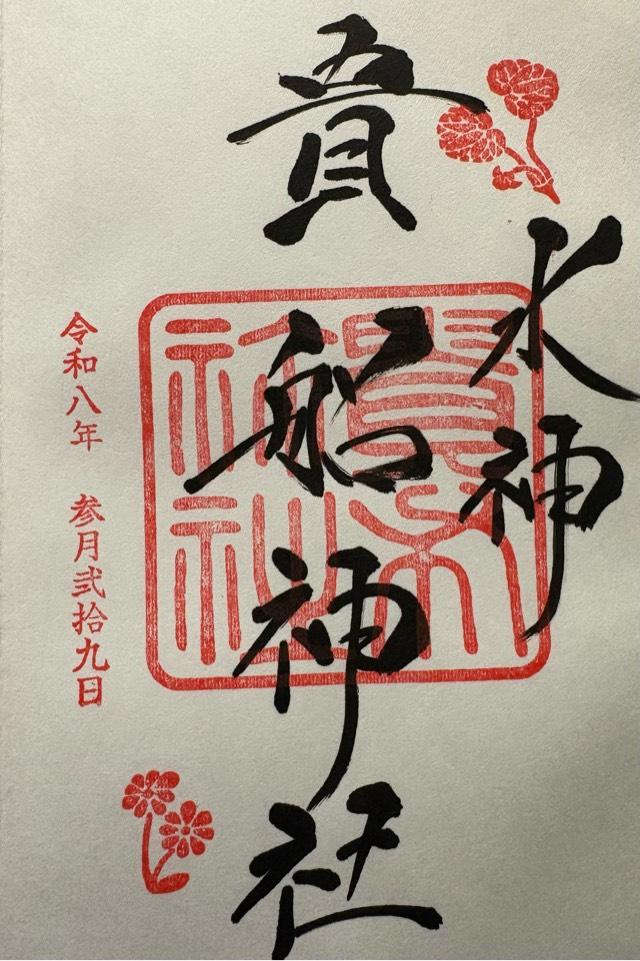 水神
貴船神社
令和八年 参月弐拾九日